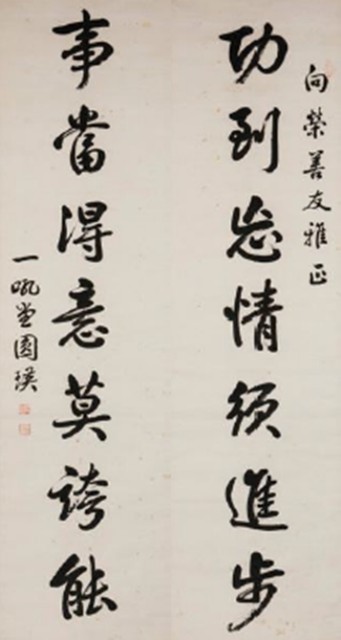 向榮善友雅正
功到忘情須進步
事當得意莫誇能
一吼堂圓瑛